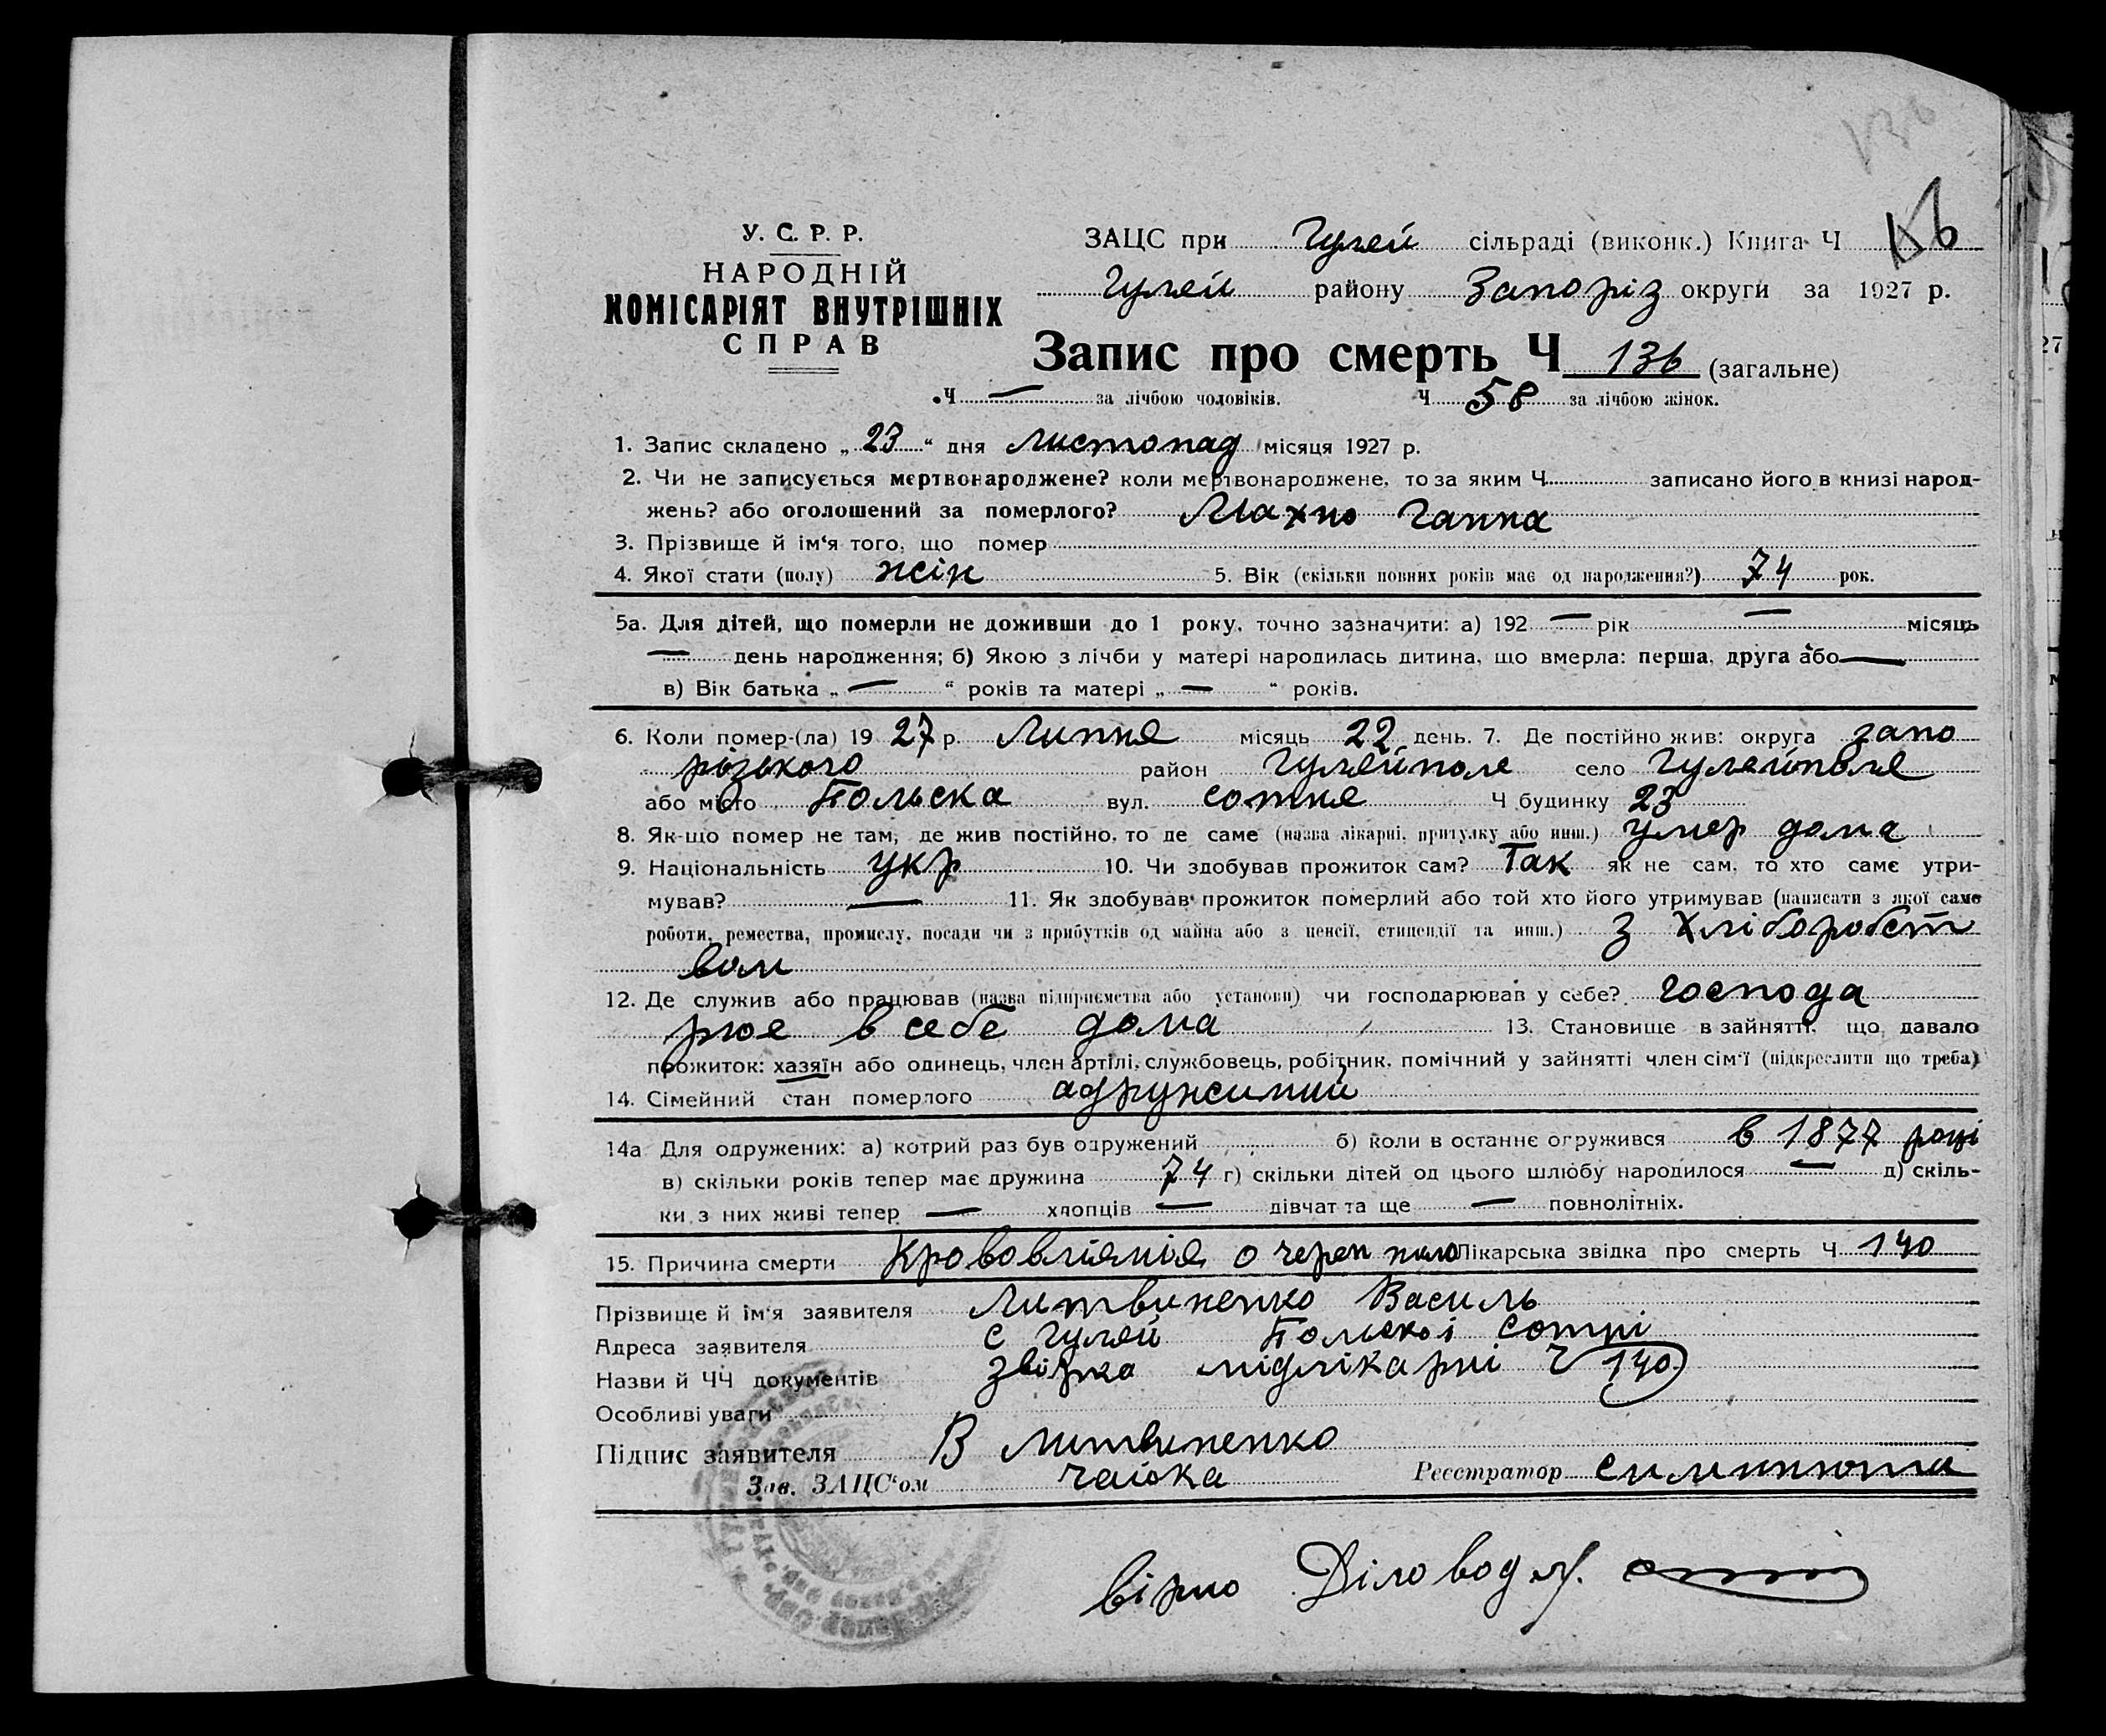 У. С. Р. Р.
НАРОДНІЙ
КОМІСАРІЯТ ВНУТРІШНІХ
СПРАВ
ЗАЦС при Гуляй сільраді (виконк.) Книга Ч
Гуляй району Запоріз округи за 1927 р.
Запис про смерть Ч 136 (загальне)
Ч — за лічбою чоловіків. Ч 58 за лічбою жінок.
1. Запис складено „23“ дня листопад місяця 1927 р.
2. Чи не записується мертвонароджене? коли мертвонароджене, то за яким Ч записано його в книзі народ-
жень? або оголошений за померлого? Махно Ганна
3. Прізвище й ім'я того, що помер
4. Якої стати (полу) жін 5. Вік (скільки повних років має од народження?) 74 рок.
5а. Для дітей, що померли не доживши до 1 року, точно зазначити: а) 192 — рік — місяць
— день народження; б) Якою з лічби у матері народилась дитина, що вмерла: перша, друга або —
в) Вік батька „ — “ років та матері „ — “ років.
6. Коли помер-(ла) 19 27 р. Липня місяць 22 день. 7. Де постійно жив: округа запо
різького район Гуляйполе село Гуляйполе
або місто Польска вул. сотня Ч будинку 23
8. Як-що помер не там, де жив постійно, то де саме (назва лікарні, притулку або инш.) умер дома
9. Національність укр 10. Чи здобував прожиток сам? Так як не сам, то хто саме утри-
мував? — 11. Як здобував прожиток померлий або той хто його утримував (написати з якої саме
роботи, ремества, промислу, посади чи з прибутків од майна або з пенсії, стипендії та инш.) з хліборобст
вом
12. Де служив або працював (назва підприємства або установи) чи господарював у себе? господа
рюе в себе дома 13. Становище в зайнятті, що давало
прожиток: хазяїн або одинець, член артілі, службовець, робітник, помічний у зайнятті член сім'ї (підкреслити що треба)
14. Сімейний стан померлого адружиний
14а Для одружених: а) котрий раз був одружений б) коли в останнє огружився в 1877 році
в) скільки років тепер має дружина 74 г) скільки дітей од цього шлюбу народилося — д) скіль-
ки з них живі тепер — хлопців — дівчат та ще — повнолітніх.
15. Причина смерти Крововліяніе о череп Лікарська звідка про смерть Ч 140
Прізвище й ім'я заявителя Литвиненко Василь
Адреса заявителя с Гуляй Польскоі сотні
Назви й ЧЧ документів звідка лікарні Ч 140
Особливі уваги
Підпис заявителя В Литвиненко
Зав. ЗАЦС'ом Чайка Реєстратор
вірно Діловод